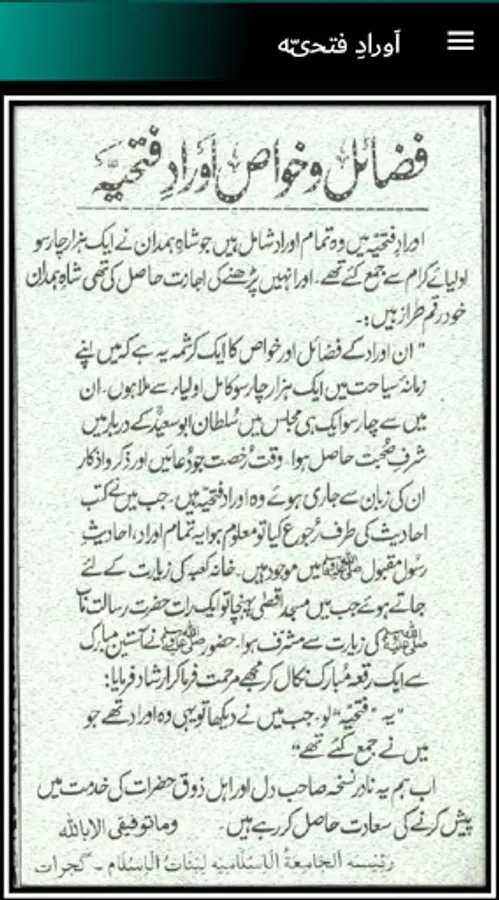 اَورادِ فتحیّہ
فضائل و خواص اَورادِ فتحیّہ
اورادِ فتحیّہ میں وہ تمام اوراد شامل ہیں جو شاہِ ہمدان نے ایک ہزار چار سو
اولیائے کرام سے جمع کئے تھے۔ اور انہیں پڑھنے کی اجازت حاصل کی تھی شاہِ ہمدان
خود رقم طراز ہیں:۔
"ان اوراد کے فضائل اور خواص کا ایک کرشمہ یہ ہے کہ میں اپنے
زمانۂ سیاحت میں ایک ہزار چار سو کامل اولیاء سے ملا ہوں۔ ان
میں سے چار سو ایک ہی مجلس میں سُلطان ابو سعیدؒ کے دربار میں
شرفِ صُحبت حاصل ہوا۔ وقت رُخصت جو دُعائیں اور ذکر و اذکار
ان کی زبان سے جاری ہوئے وہ اورادِ فتحیّہ ہیں۔ جب میں نے کتب
احادیث کی طرف رُجوع کیا تو معلوم ہوا یہ تمام اوراد، احادیثِ
رسُول مقبول ﷺ میں موجود ہیں۔ خانہ کعبہ کی زیارت کے لئے
جاتے ہوئے جب میں مسجد اقصٰی پہنچا تو ایک رات حضرت رسالت مآب
ﷺ کی زیارت سے مشرف ہوا۔ حضور ﷺ نے آستین مبارک
سے ایک رقعہ مُبارک نکال کر مجھے مرحمت فرما کر ارشاد فرمایا:
"یہ "فتحیّہ" لو۔ جب میں نے دیکھا تو یہی وہ اوراد تھے جو
میں نے جمع کئے تھے"
اب ہم یہ نادر نسخہ صاحب دل اور اہل ذوق حضرات کی خدمت میں
پیش کرنے کی سعادت حاصل کر رہے ہیں۔ وما توفیقی الا باللہ
رئیسہ الجامعۃ الاسلامیہ لبنات الاسلام۔ گجرات